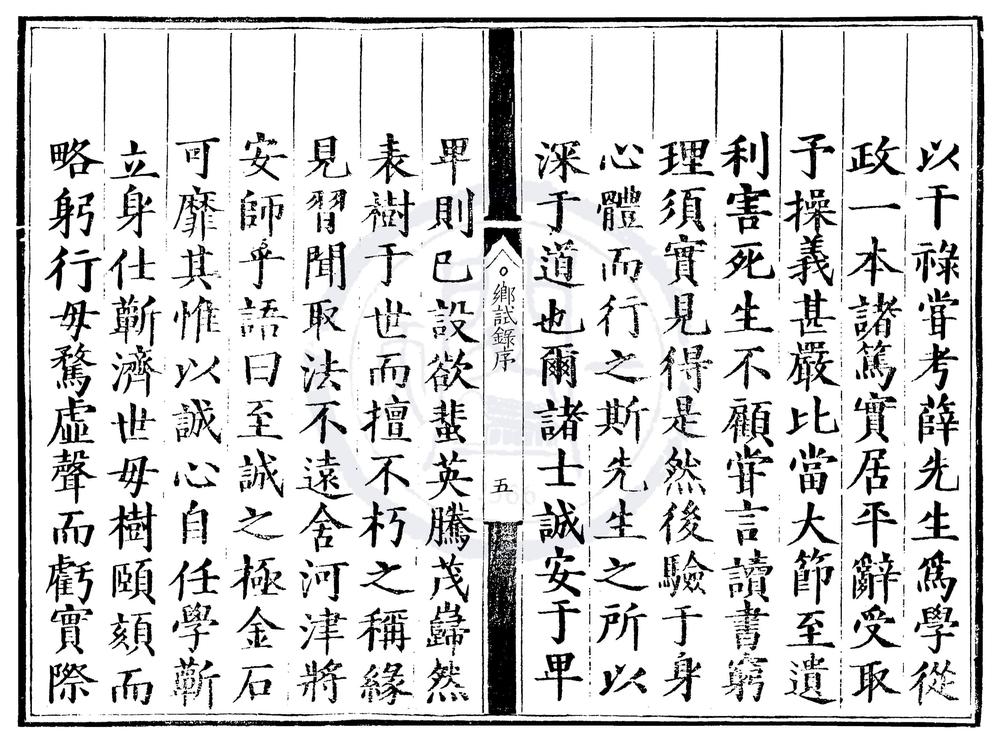 以干祿甞考薛先生爲學從
政一本諸篤實居平辭受取
予操義甚嚴比當大節至遺
利害死生不顧甞言讀書窮
理須實見得是然後驗于身
心體而行之斯先生之所以
深于道也爾諸士誠安于卑
鄉試錄序
五
卑則已設欲蜚英騰茂巋然
表樹于世而擅不朽之稱緣
見習聞取法不遠舍河津將
安師乎語曰至誠之極金石
可靡其惟以誠心自任學蘄
立身仕蘄濟世毋樹頤頦而
略躬行毋騖虛聲而虧實際